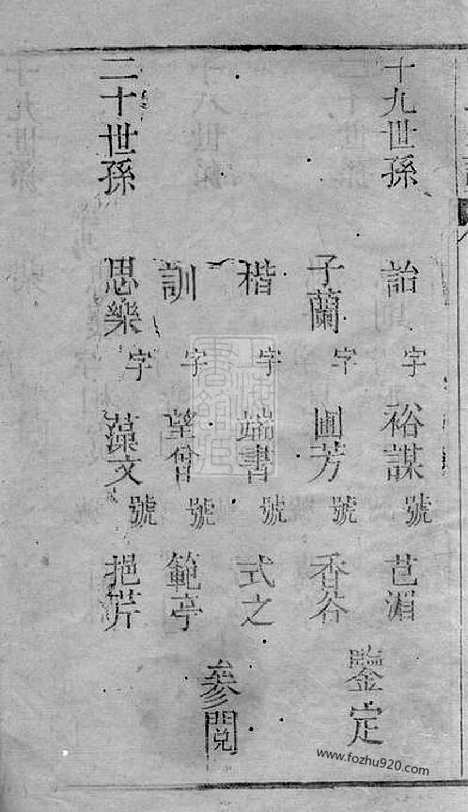 十九世孫 詒 字 裕謀 號 芑湄
子蘭 字 圃芳 號 香谷
鑒定
楷 字 端書 號 式之
訓 字 望曾 號 範亭
參閱
二十世孫 思樂 字 藻文 號 挹芹
www.fozhu920.com